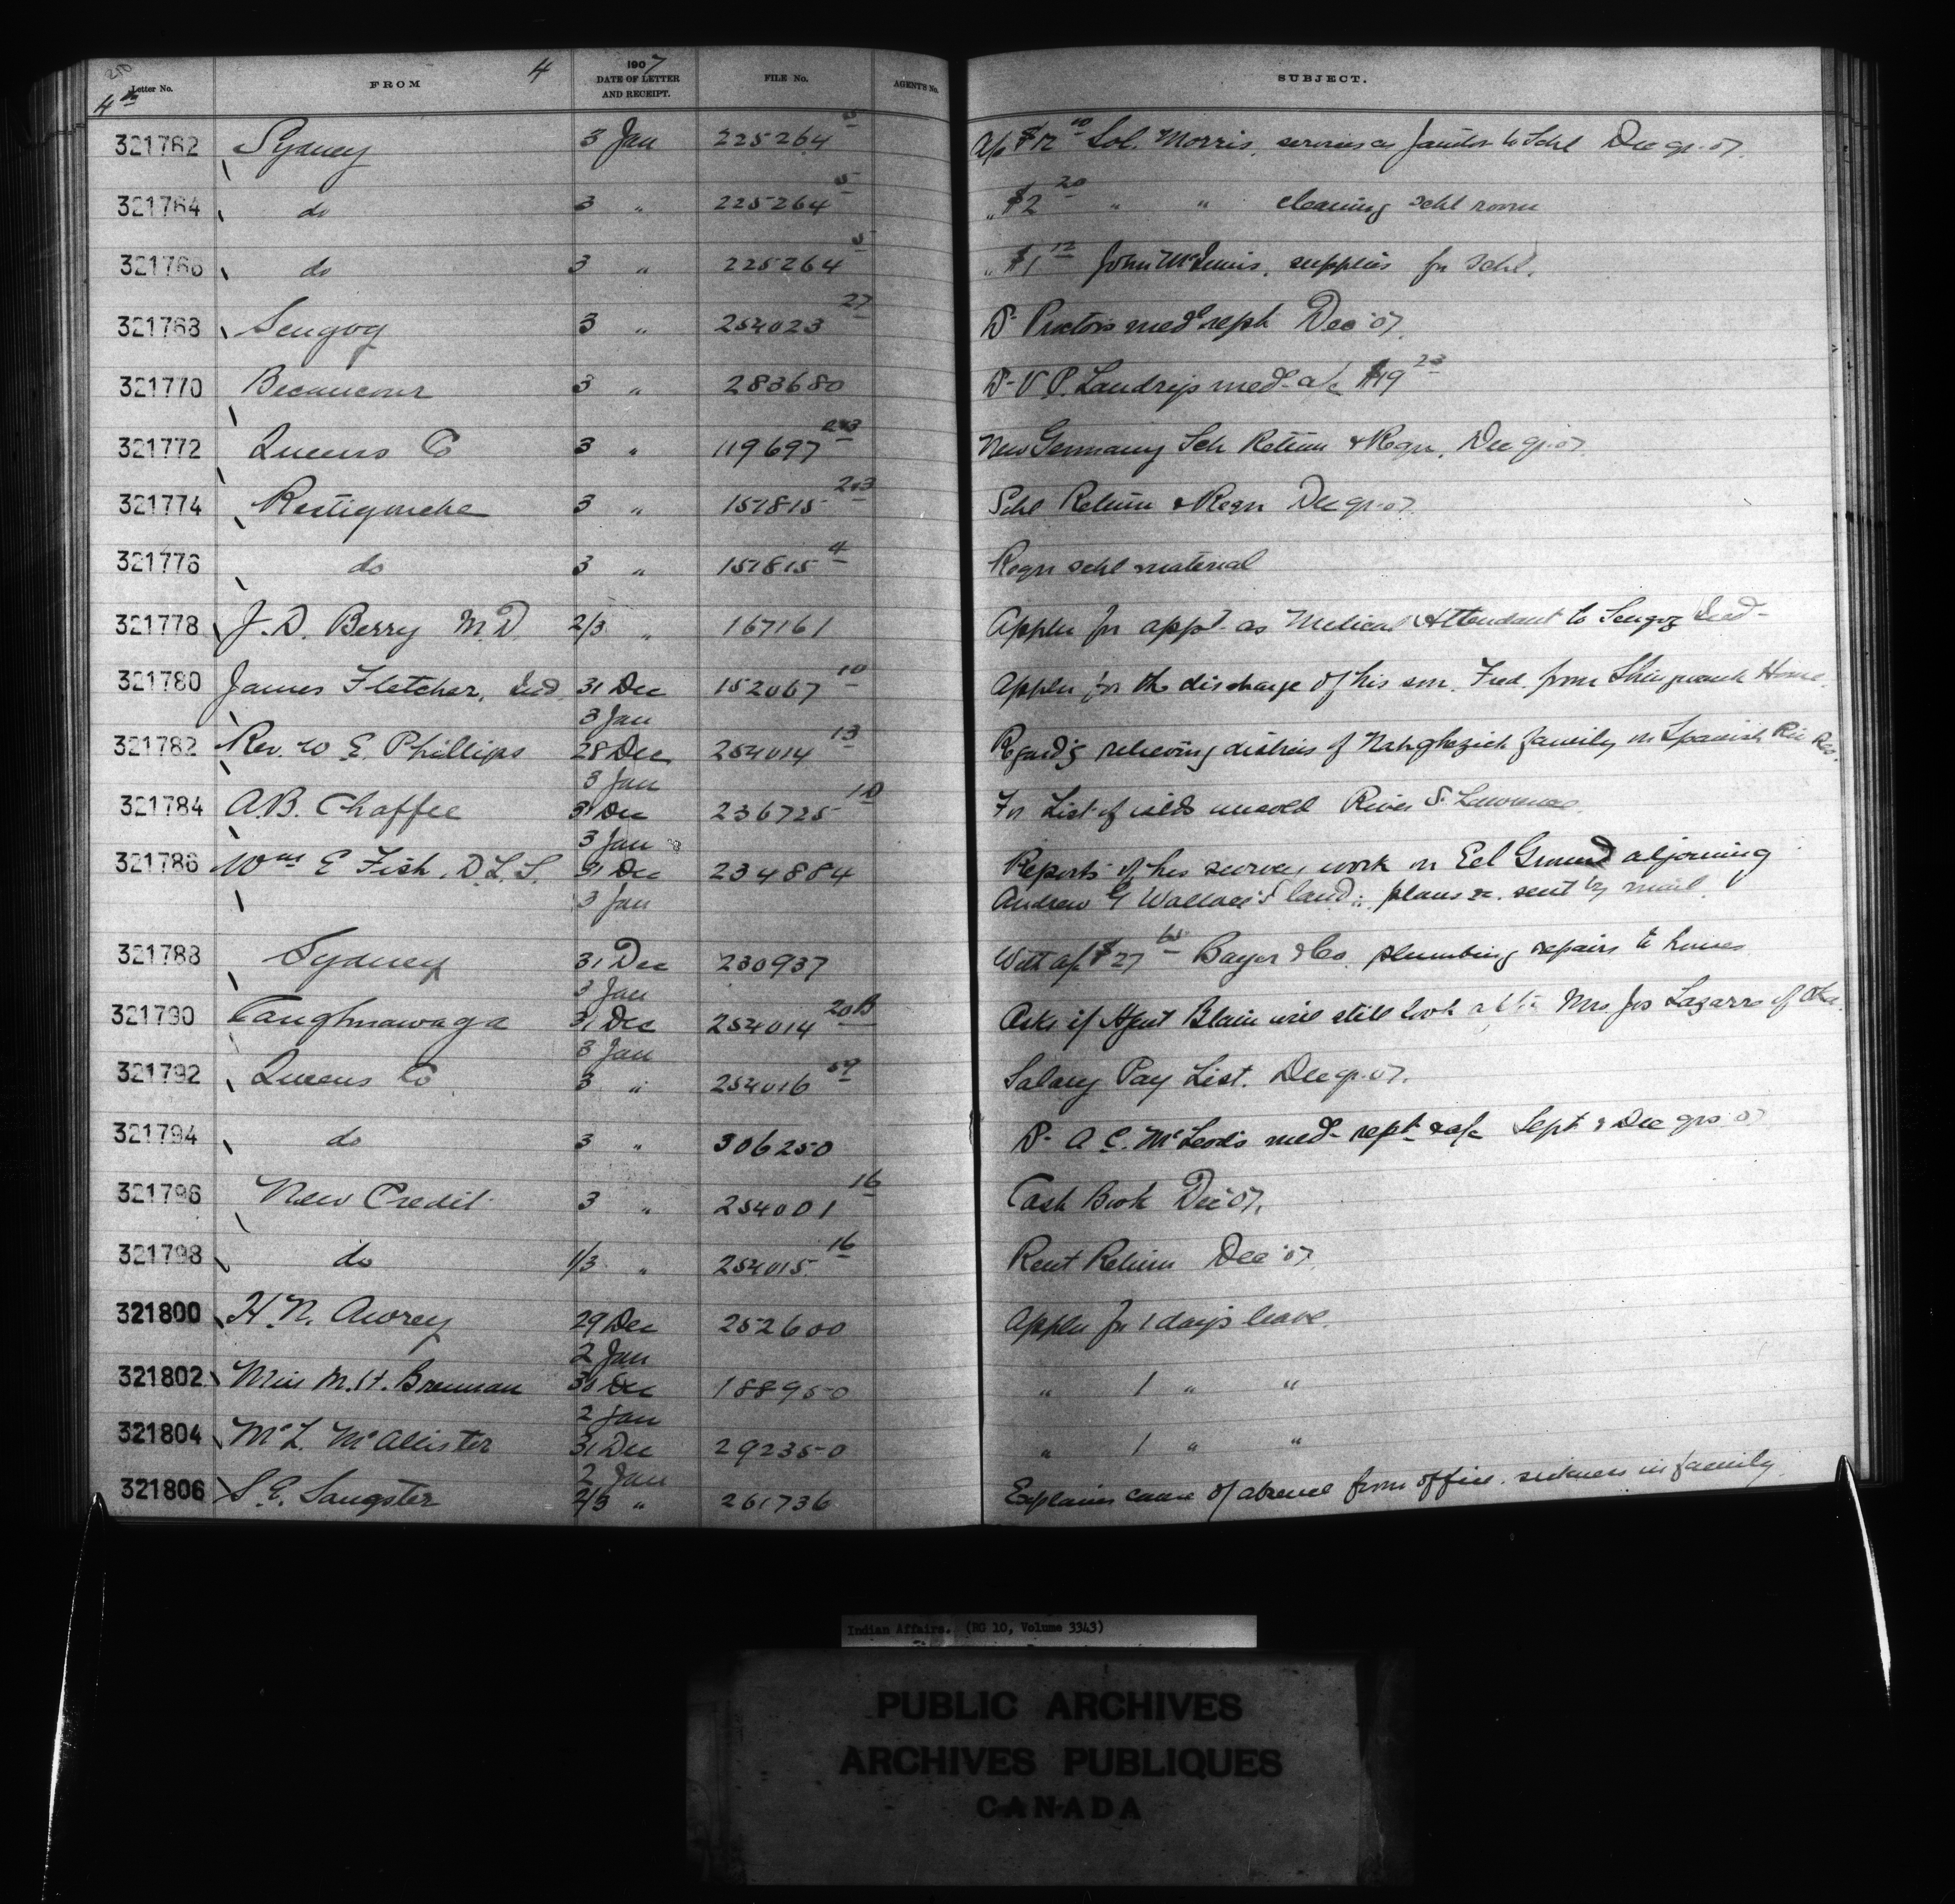 210
Letter No. FROM 4 1907 DATE OF LETTER AND RECEIPT. FILE No. AGENT'S No. SUBJECT.
4th
321762 Sydney 3 Jan 225264 5 A/c $12 00 Sol. Morris, services as Janitor to Schl Dec qr. 07.
321764 do 3 " 225264 5 " $2 20 " " cleaning schl room
321766 do 3 " 225264 5 " $1 12 John McInnis, supplies for Schl.
321768 Scugog 3 " 254023 27 Dr Proctors medl rept Dec '07.
321770 Becancour 3 " 283680 Dr V P. Landrys med a/c $19 23
321772 Queens Co 3 " 119697 New Germany Sch Return & Reqn, Dec qr. 07.
321774 Restigouche 3 " 157815 Schl Return & Reqn Dec qr. 07.
321776 do 3 " 157815 4 Reqn schl material
321778 J. D. Berry M.D 2/3 " 167161 Appln for appt as Medical Attendant to Scugog Ind
321780 James Fletcher, Ind 31 Dec 152067 10 Appln for the discharge of his son, Fred, from Shingwauk Home.
3 Jan
321782 Rev. W E Phillips 28 Dec 254014 13 Regardg relieving distress of family on Spanish Riv Res.
3 Jan
321784 A.B. Chaffee 31 Dec 236725 10 For List of islds unsold River St Lawrence
3 Jan
321786 Wm E Fish, D.L.S. 31 Dec 234884 Reports of his survey work on Eel Ground adjoining
3 Jan Andrew G Wallace's land; plans &c. sent by mail
321788 Sydney 31 Dec 230937 With a/c $27 Bayer & Co. plumbing repairs to houses
3 Jan
321790 Caughnawaga 31 Dec 254014 20B Asks if Agent Blain will still look after Mrs Jos Lazarre of Oka.
3 Jan
321792 Queens Co 3 " 254016 59 Salary Pay List. Dec qr. 07.
321794 do 3 " 306250 Dr A C. McLeods med rept & a/c Sept & Dec qrs 07
321796 New Credit 3 " 254001 16 Cash Book Dec '07.
321798 do 1/3 " 254015 16 Rent Return Dec '07.
321800 H. N. Awrey 29 Dec 252600 Appln for 1 day's leave.
2 Jan
321802 Miss M. H. Brennan 30 Dec 188950 " 1 " "
2 Jan
321804 McL. McAllister 31 Dec 292350 " 1 " "
2 Jan
321806 S. E. Sangster 2/3 " 261736 Explains cause of absence from office. sickness in family
Indian Affairs. (RG 10, Volume 3343)
PUBLIC ARCHIVES
ARCHIVES PUBLIQUES
CANADA